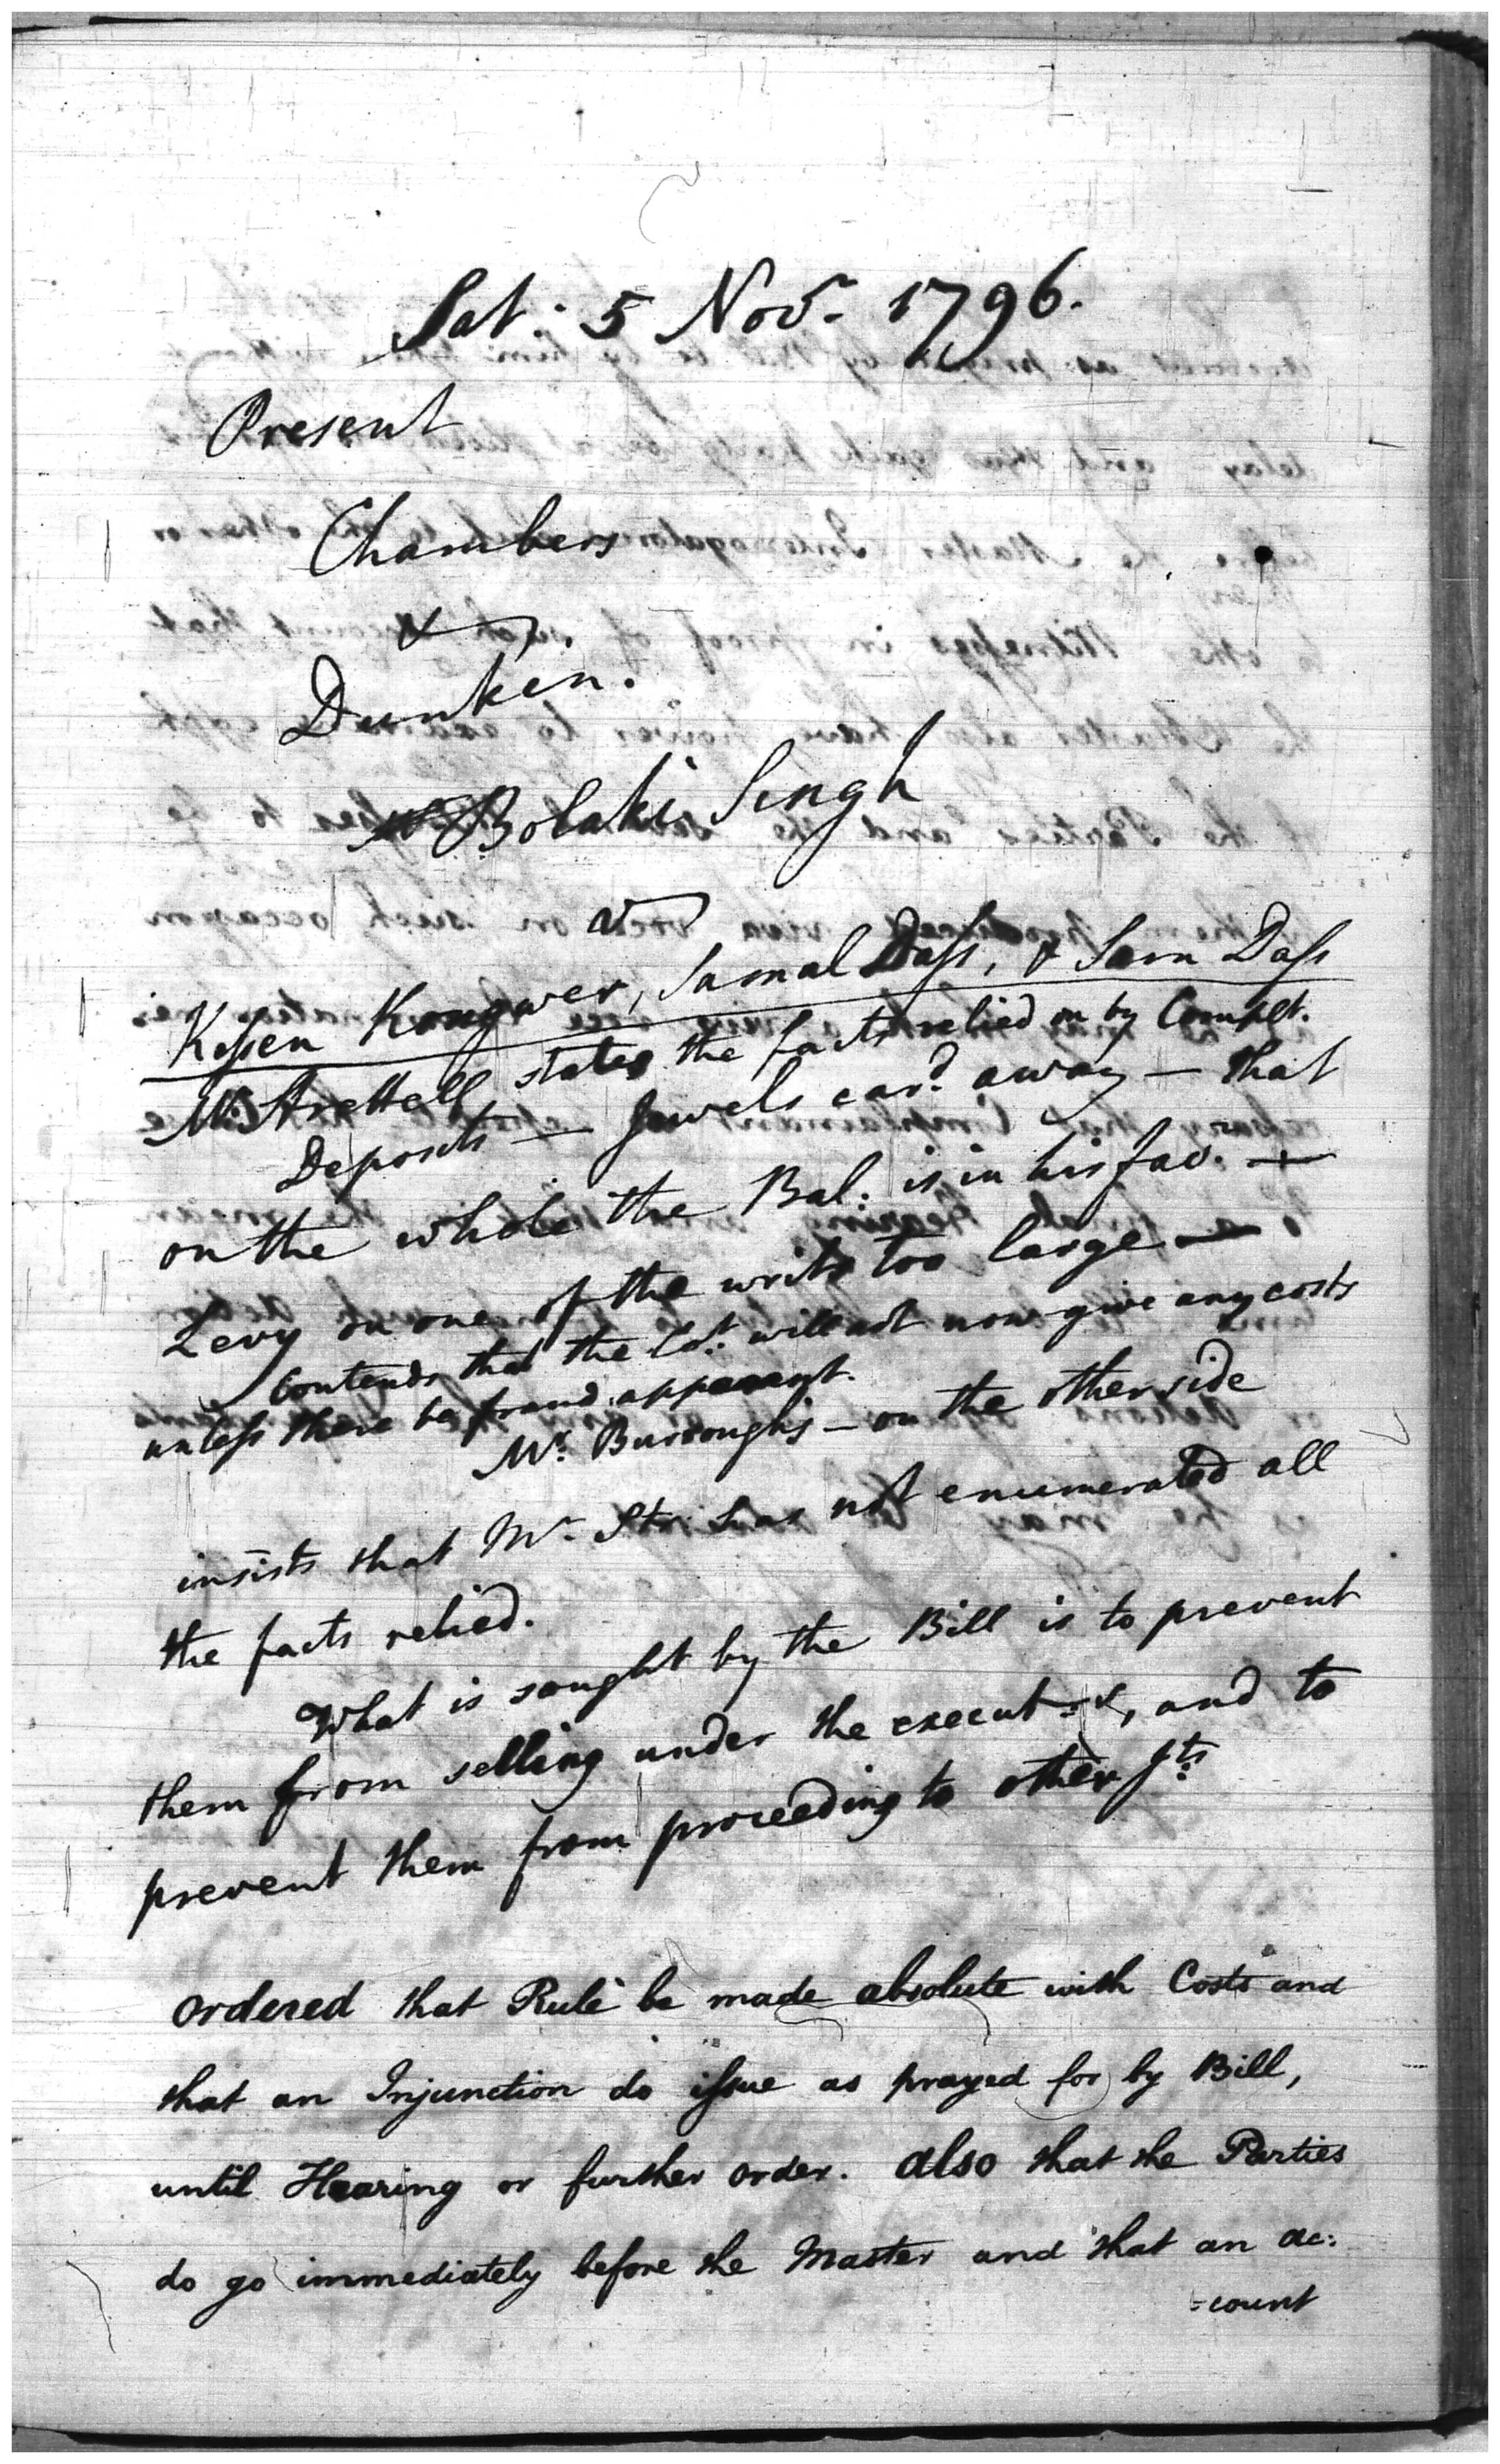 Sat: 5 Novr. 1796.
Present
Chambers
&
Dunkin.
Bolaki Singh
v
Kissen Kongwer, Samal Dass, & Sam Dass
Mr. Strettell states the facts relied on by Complt.
Deposits — Jewels card. away — that
on the whole the Bal: is in his fav. —
Levy on one of the writs too large —
Contends that the Cot. will not now give any costs
unless there be fraud apparent.
Mr. Burroughs — on the other side
insists that Mr. Str: has not enumerated all
the facts relied.
What is sought by the Bill is to prevent
them from selling under the execut &, and to
prevent them from proceeding to other Jts.
ordered that Rule be made absolute with Costs and
that an Injunction do issue as prayed for by Bill,
until Hearing or further order. also that the Parties
do go immediately before the Master and that an ac:
=count